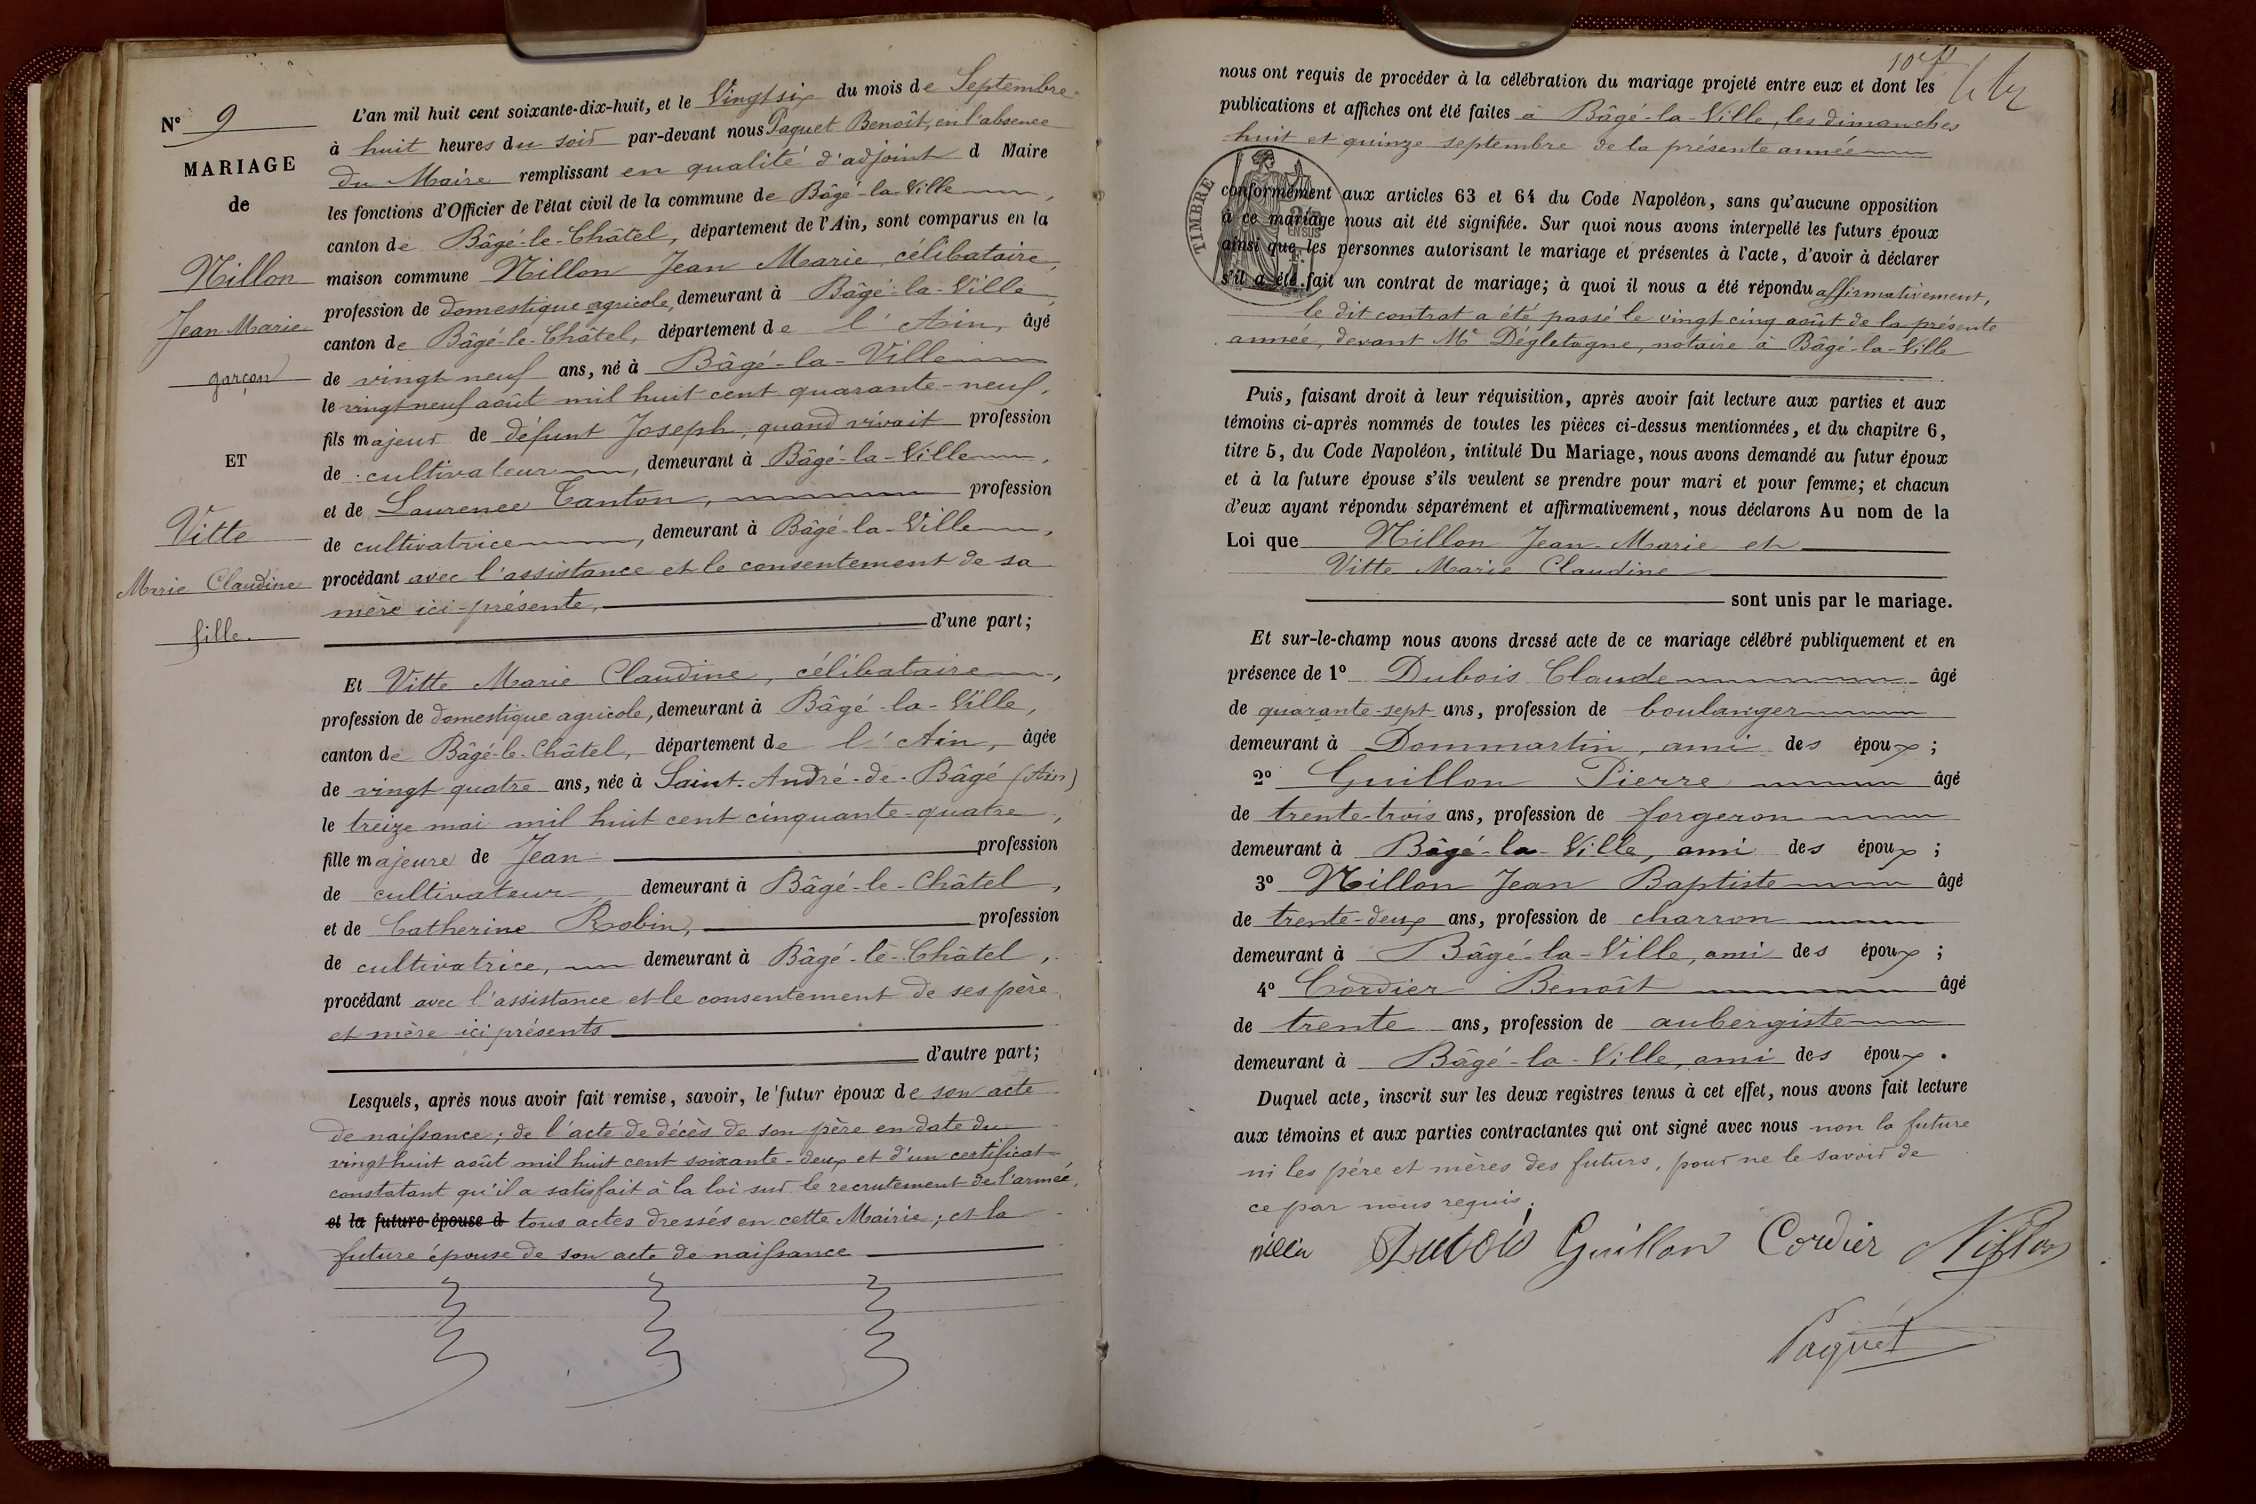 N° 9
MARIAGE
de
Nillon
Jean Marie
garçon
ET
Vitte
Marie Claudine
fille.
L'an mil huit cent soixante-dix-huit, et le Vingt six du mois de Septembre
à huit heures du soir par-devant nous Paquet Benoît, en l'absence
du Maire remplissant en qualité d'adjoint d Maire
les fonctions d'Officier de l'état civil de la commune de Bâgé-la-Ville,
canton de Bâgé-le-Châtel, département de l'Ain, sont comparus en la
maison commune Nillon Jean Marie, célibataire,
profession de domestique agricole, demeurant à Bâgé-la-Ville,
canton de Bâgé-le-Châtel, département de l'Ain, âgé
de vingt neuf ans, né à Bâgé-la-Ville
le vingt neuf août mil huit cent quarante-neuf,
fils majeur de défunt Joseph, quand vivait profession
de cultivateur, demeurant à Bâgé-la-Ville,
et de Laurence Tanton, profession
de cultivatrice, demeurant à Bâgé-la-Ville,
procédant avec l'assistance et le consentement de sa
mère ici-présente,
d'une part;
Et Vitte Marie Claudine, célibataire,
profession de domestique agricole, demeurant à Bâgé-la-Ville,
canton de Bâgé-le-Châtel, département de l'Ain, âgée
de vingt quatre ans, née à Saint-André-de-Bâgé (Ain)
le treize mai mil huit cent cinquante-quatre,
fille majeure de Jean profession
de cultivateur demeurant à Bâgé-le-Châtel,
et de Catherine Robin, profession
de cultivatrice, demeurant à Bâgé-le-Châtel,
procédant avec l'assistance et le consentement de ses père
et mère ici présents
d'autre part;
Lesquels, après nous avoir fait remise, savoir, le futur époux de son acte
de naissance; de l'acte de décès de son père en date du
vingt huit août mil huit cent soixante-deux et d'un certificat
constatant qu'il a satisfait à la loi sur le recrutement de l'armée,
et la future épouse d tous actes dressés en cette Mairie; et la
future épouse de son acte de naissance
nous ont requis de procéder à la célébration du mariage projeté entre eux et dont les
publications et affiches ont été faites à Bâgé-la-Ville, les dimanches
huit et quinze septembre de la présente année
TIMBRE
EN SUS
conformément aux articles 63 et 64 du Code Napoléon, sans qu'aucune opposition
à ce mariage nous ait été signifiée. Sur quoi nous avons interpellé les futurs époux
ainsi que les personnes autorisant le mariage et présentes à l'acte, d'avoir à déclarer
s'il a été fait un contrat de mariage; à quoi il nous a été répondu affirmativement,
le dit contrat a été passé le vingt cinq août de la présente
année, devant Me Dégletagne, notaire à Bâgé-la-Ville
Puis, faisant droit à leur réquisition, après avoir fait lecture aux parties et aux
témoins ci-après nommés de toutes les pièces ci-dessus mentionnées, et du chapitre 6,
titre 5, du Code Napoléon, intitulé Du Mariage, nous avons demandé au futur époux
et à la future épouse s'ils veulent se prendre pour mari et pour femme; et chacun
d'eux ayant répondu séparément et affirmativement, nous déclarons Au nom de la
Loi que Nillon Jean-Marie et
Vitte Marie Claudine
sont unis par le mariage.
Et sur-le-champ nous avons dressé acte de ce mariage célébré publiquement et en
présence de 1° Dubois Claude âgé
de quarante-sept ans, profession de boulanger
demeurant à Dommartin, ami des époux;
2° Guillon Pierre âgé
de trente-trois ans, profession de forgeron
demeurant à Bâgé-la-Ville, ami des époux;
3° Nillon Jean Baptiste âgé
de trente-deux ans, profession de charron
demeurant à Bâgé-la-Ville, ami des époux;
4° Cordier Benoît âgé
de trente ans, profession de aubergiste
demeurant à Bâgé-la-Ville, ami des époux.
Duquel acte, inscrit sur les deux registres tenus à cet effet, nous avons fait lecture
aux témoins et aux parties contractantes qui ont signé avec nous non la future
ni les père et mères des futurs, pour ne le savoir de
ce par nous requis.
Dubois Guillon Cordier Nillon
Paquet